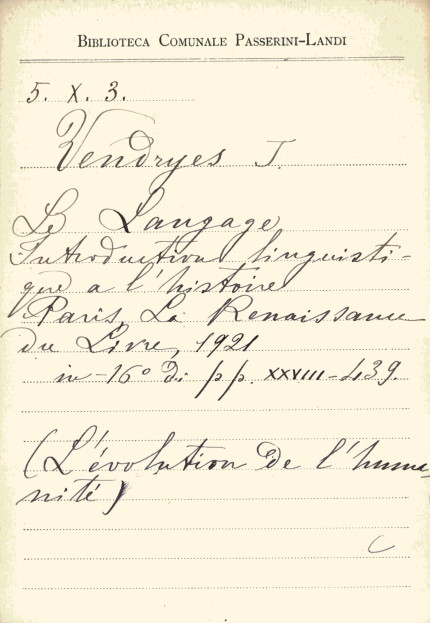 BIBLIOTECA COMUNALE PASSERINI-LANDI
5. X. 3.
Vendryes J.
Le Langage
Introduction linguisti-
que a l'histoire
Paris, La Renaissance
du Livre, 1921
in-16° di pp. XXVIII-439.
(L'évolution de l'huma-
nité)